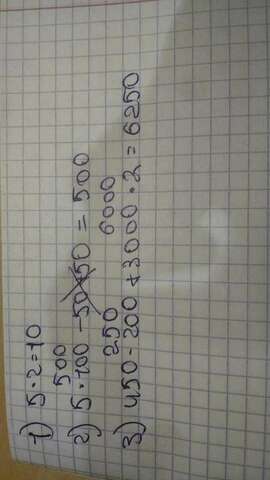 1) 5·2=10
500
2) 5·100 -50+50 = 500
250 6000
3) 450-200 +3000·2=6250